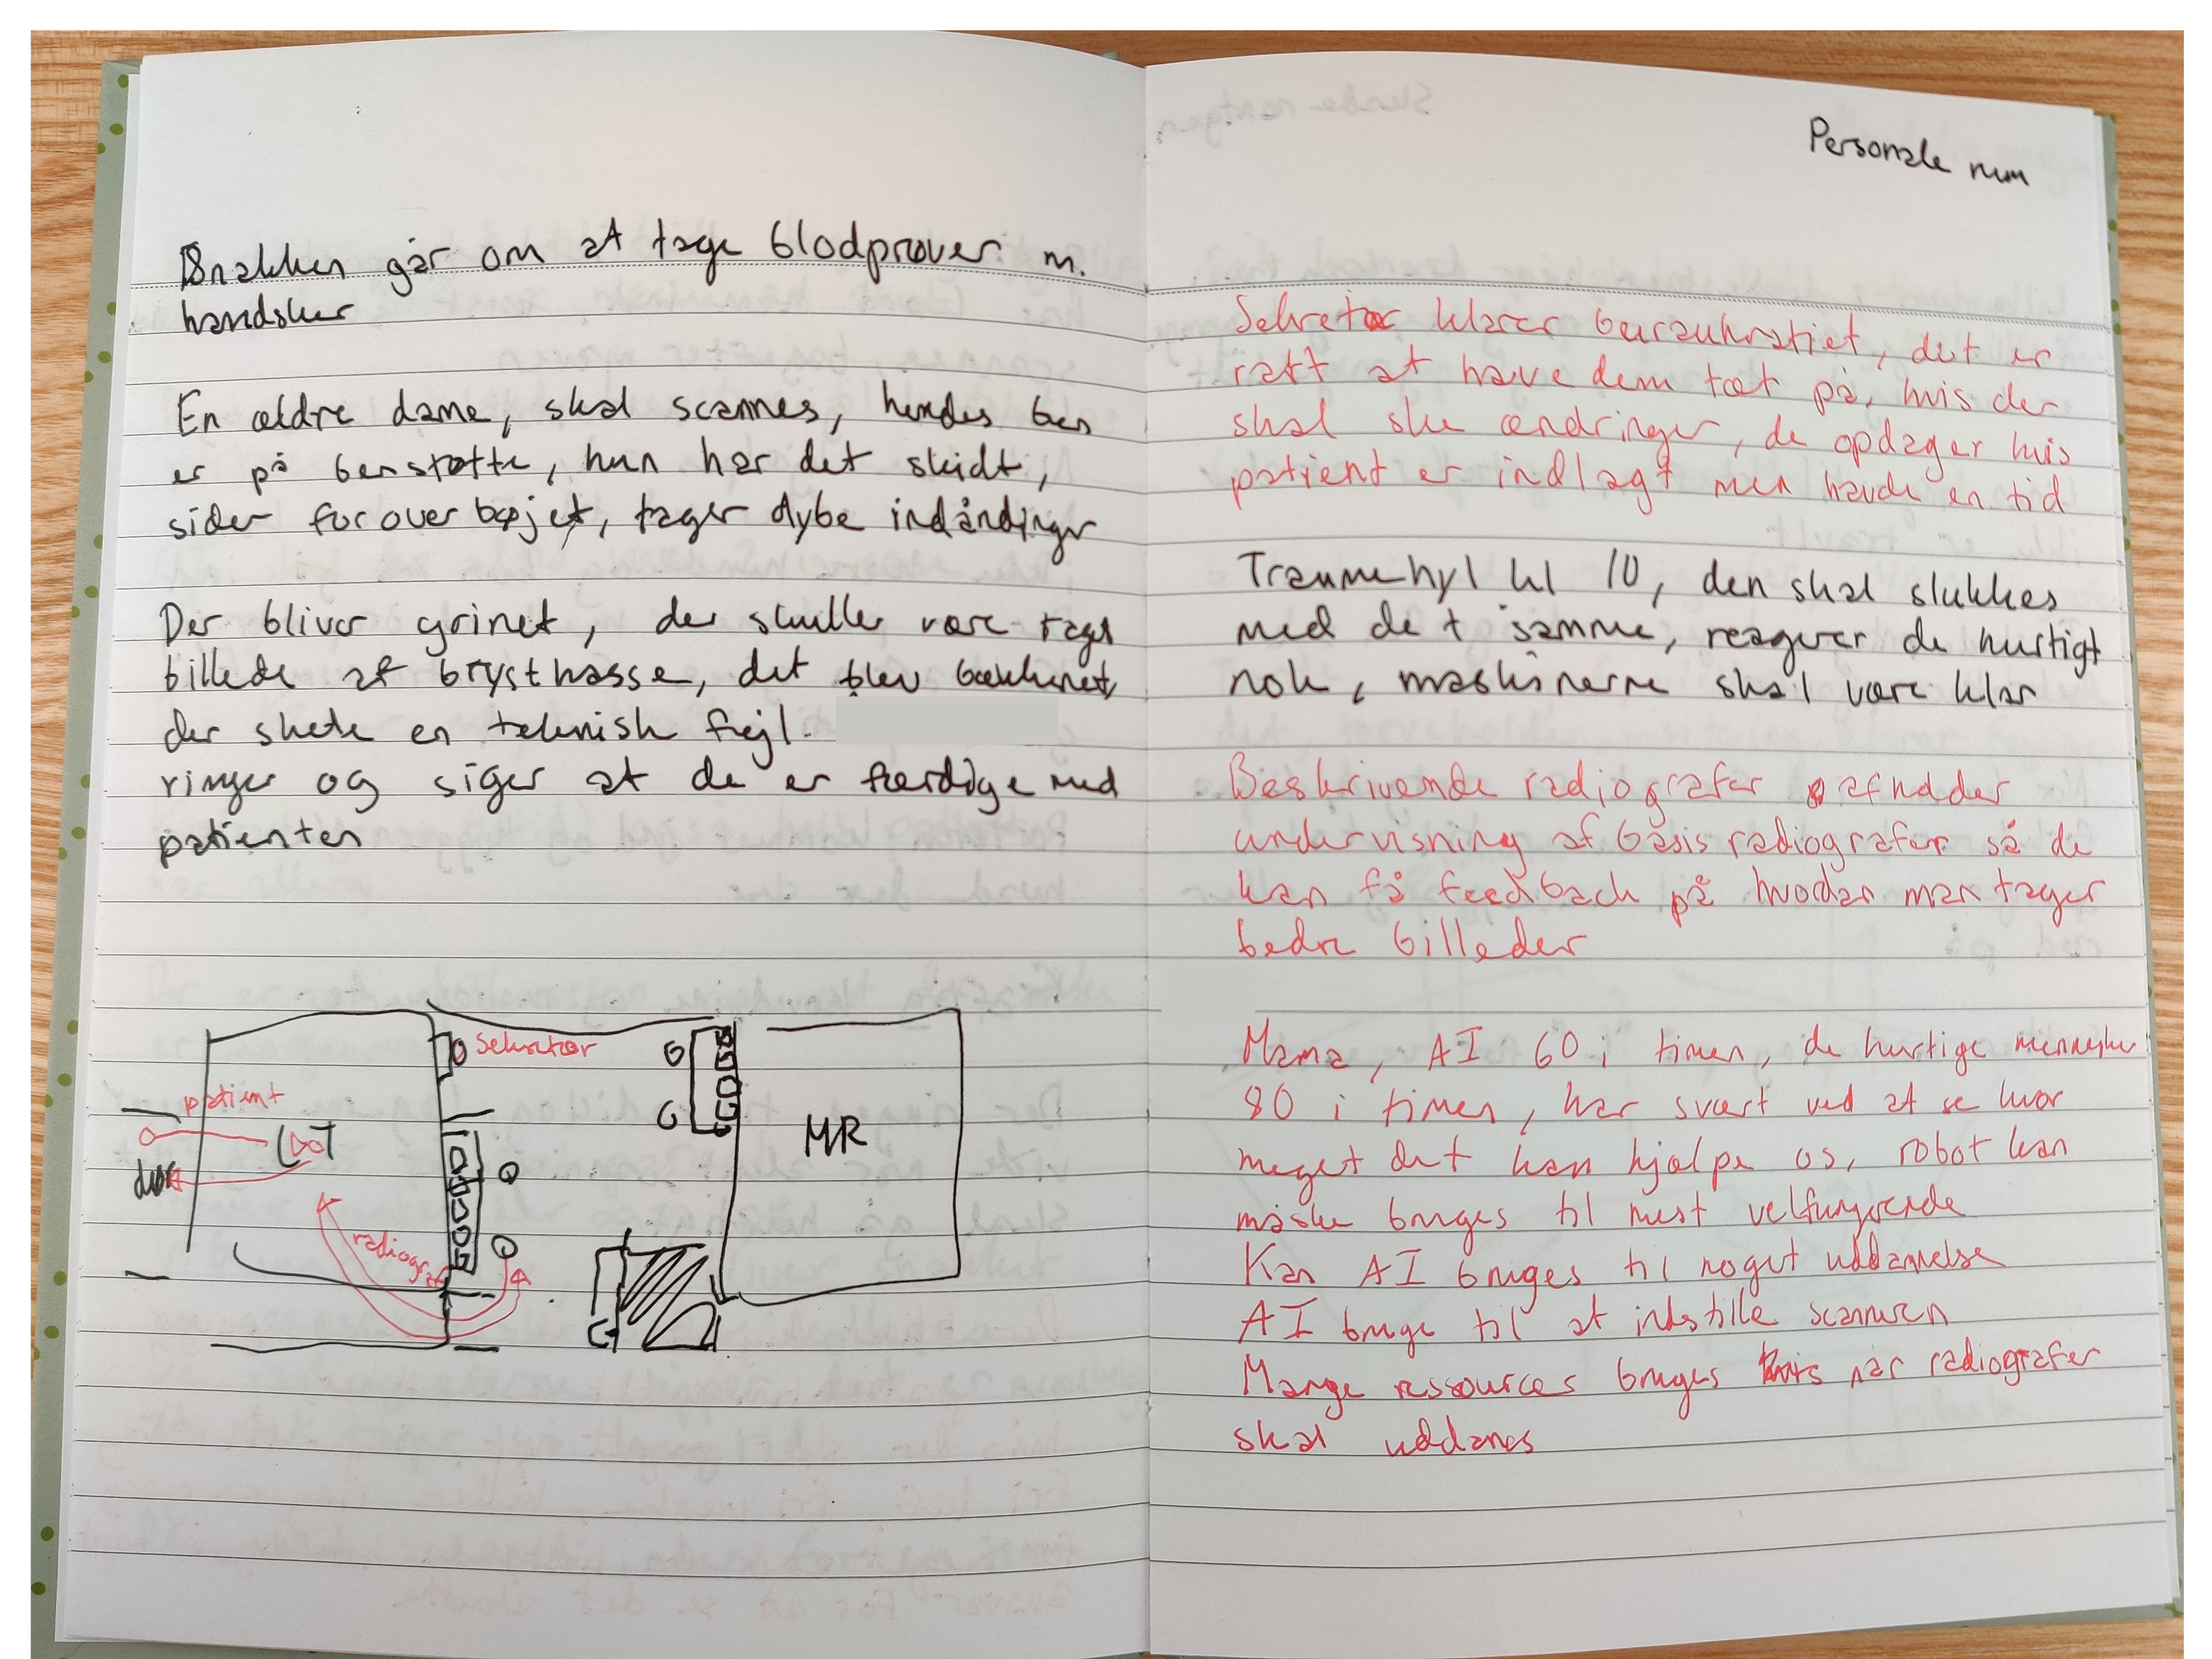 Snakken går om at tage blodprøver m.
handsker
En ældre dame, skal scannes, hendes ben
er på benstøtte, hun har det skidt,
sider foroverbøjet, tager dybe indåndinger
Der bliver grinet, der skulle være taget
billede af brystkasse, det blev bækkenet,
der skete en teknish fejl.
ringer og siger at de er færdige med
patienten
Sekretær
patient
dør
radiograf
MR
Personale rum
Sekretær klarer beuraukratiet, det er
ratt at have dem tæt på, hvis der
skal ske ændringer, de opdager hvis
patient er indlagt men havde en tid
Traumehyl kl 10, den skal slukkes
med det samme, reagerer de hurtigt
nok, maskinerne skal være klar
Beskrivende radiografer afholder
undervisning af basis radiografer så de
kan få feedback på hvordan man tager
bedre billeder
Mama, AI 60 i timen, de hurtige menneske
80 i timen, har svært ved at se hvor
meget det kan hjælpe os, robot kan
måske bruges til mest velfungerende
Kan AI bruges til noget uddannelse
AI bruge til at indstille scanneren
Mange ressources bruges når radiografer
skal uddanes